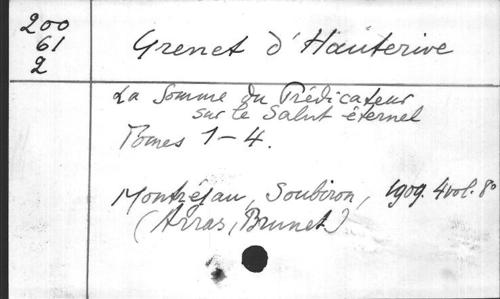 200
61
2
Grenet d'Hauterive
La Somme du Prédicateur
sur le Salut éternel
Tomes 1-4.
Montréjau, Soubiron, 1909. 4 vol. 8°
(Arras, Brunet)